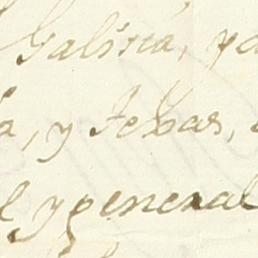 Galicia, y
a, y Texas,
l y general